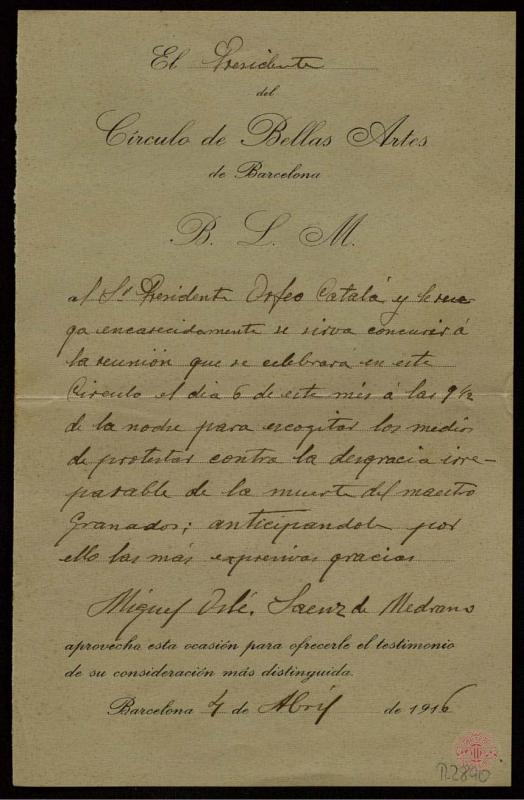 El Presidente
del
Círculo de Bellas Artes
de Barcelona
B. L. M.
al Sr Presidente Orfeo Catalá y le rue
ga encarecidamente se sirva concurrir á
la reunión que se celebrará en este
Circulo el dia 6 de este més á las 9 1/2
de la noche para escogitar los medios
de protestar contra la desgracia irre-
parable de la muerte del maestro
Granados; anticipandole por
ello las más expresivas gracias
Miguel Oslé. Saenz de Medrano
aprovecha esta ocasión para ofrecerle el testimonio
de su consideración más distinguida.
Barcelona 4 de Abril de 1916
R.2890